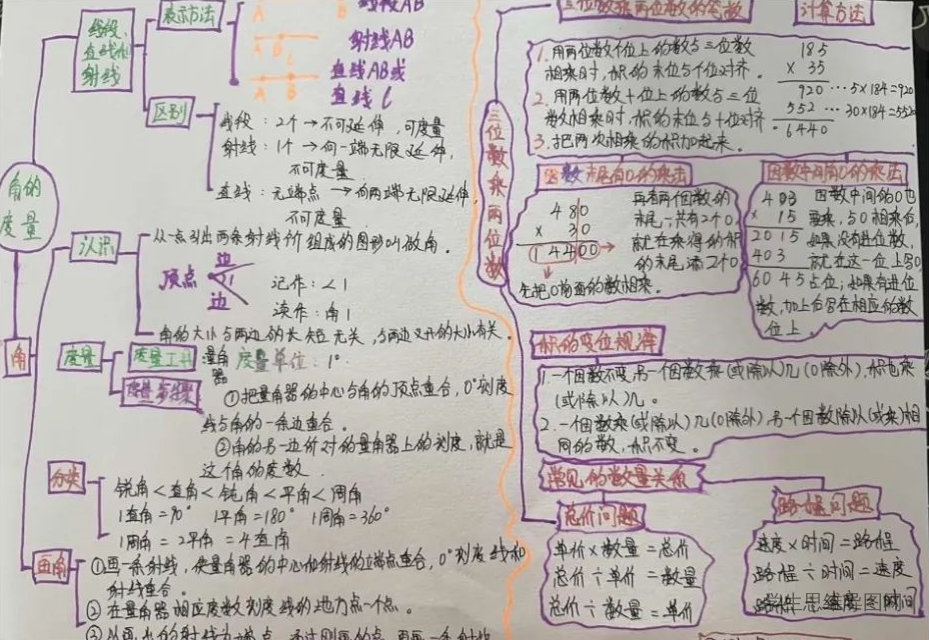 线段、
直线和
射线
表示方法
A
B
线段AB
A B
射线AB
A B
直线AB或
直线 l
区别
线段：2个→不可延伸，可度量
射线：1个→向一端无限延伸，
不可度量
直线：无端点→向两端无限延伸，
不可度量
角的
度量
角
认识
从一点引出两条射线所组成的图形叫做角。
顶点
边
1
边
记作：∠1
读作：角1
角的大小与两边的长短无关，与两边叉开的大小有关。
度量
度量工具
量角
器
度量单位：1°
度量步骤
①把量角器的中心与角的顶点重合，0°刻度
线与角的一条边重合。
②角的另一边所对的量角器上的刻度，就是
这个角的度数
分类
锐角<直角<钝角<平角<周角
1直角=90° 1平角=180° 1周角=360°
1周角=2平角=4直角
画角
①画一条射线，使量角器的中心和射线的端点重合，0°刻度线和
射线重合。
②在量角器相应度数刻度线的地方点一个点。
三位数乘两位数
三位数乘两位数的笔算
计算方法
1.用两位数个位上的数与三位数
相乘时，积的末位与个位对齐。
2.用两位数十位上的数与三位
数相乘时，积的末位与十位对齐。
3.把两次相乘的积加起来。
185
× 35
920 …5×184=920
552 …30×184=552
6440
因数末尾有0的乘法
480
× 30
14400
先把0前面的数相乘。
再看两个因数的
末尾一共有2个0
就在乘得的积
的末尾添2个0
因数中间有0的乘法
403
× 15
2015
403
6045
因数中间的0也
要乘，与0相乘后，
如果没有进位数，
就在这一位上写0
占位；如果有进位
数，加上后写在相应的数
位上。
积的变化规律
1.一个因数不变，另一个因数乘(或除以)几(0除外)，积也乘
(或除以)几。
2.一个因数乘(或除以)几(0除外)，另一个因数除以(或乘)相
同的数，积不变。
常见的数量关系
总价问题
单价×数量=总价
总价÷单价=数量
总价÷数量=单价
路程问题
速度×时间=路程
路程÷时间=速度